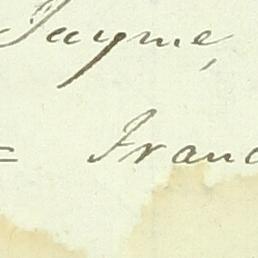 Jayme,
= Franc